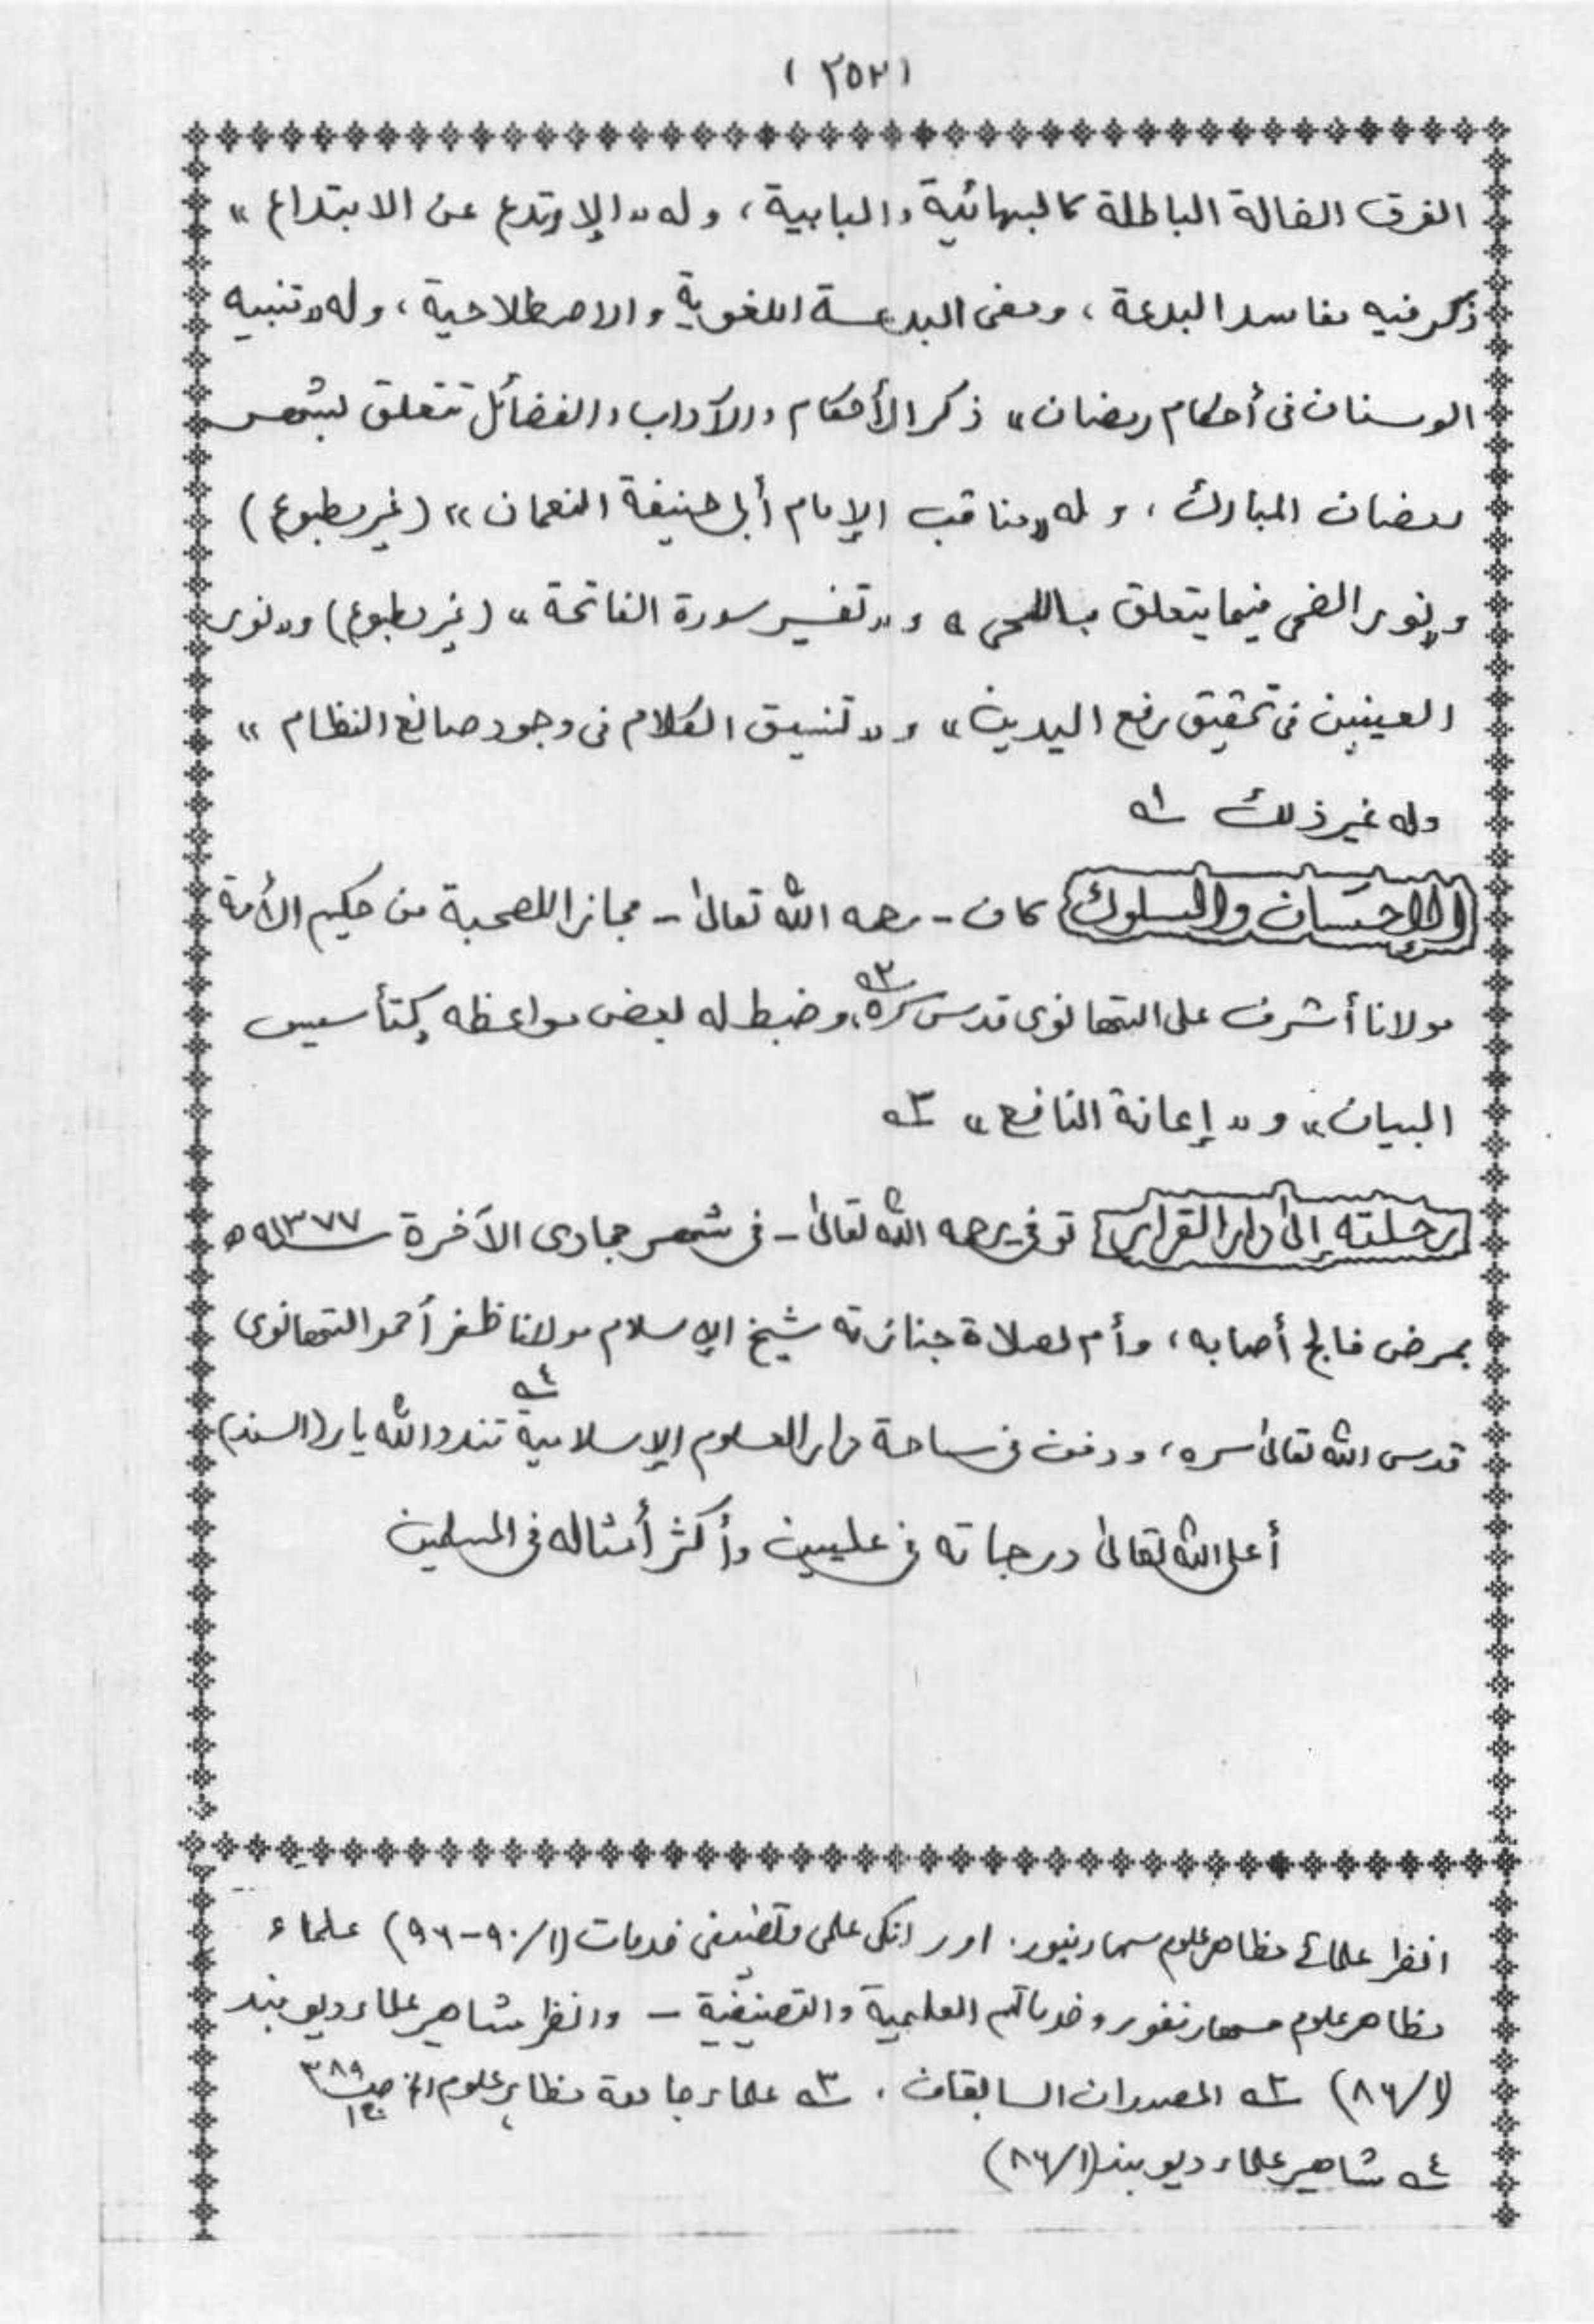 (٢٥٢)
الفرق الضالة الباطلة كالبهائية والبابية، وله «الإرتدع عن الابتداع»
ذكر فيه مفاسد البدعة، ومعنى البدعة اللغوية والاصطلاحية، وله «تنبيه
الوسنان فى أحكام رمضان» ذكر الأحكام والآداب والفضائل تتعلق بشهر
رمضان المبارك، وله «مناقب الإمام أبى حنيفة النعمان» (غير مطبوع)
و«نور الضحى فيما يتعلق باللحى» و«تفسير سورة الفاتحة» (غير مطبوع) و«نور
العينين فى تحقيق رفع اليدين» و«تنسيق الكلام فى وجود صانع النظام»
وله غير ذلك ١ه
الإحسان والسلوك كان - رحمه الله تعالىٰ - مجازا للصحبة من حكيم الأمة
مولانا أشرف على التهانوى قدس سره٢ه، وضبط له بعض مواعظه كـ«تأسيس
البيان» و«إعانة النافع» ٣ه
رحلته إلى دار القرار توفى رحمه الله تعالىٰ - فى شهر جمادى الآخرة سنة ١٣٧٧ه
بمرض فالج أصابه، وأم لصلاة جنازته شيخ الإسلام مولانا ظفر أحمد التهانوى
قدس الله تعالىٰ سره، ودفن فى ساحة دار العلوم الإسلامية٤ه تندو الله يار (السند)
أعلى الله تعالىٰ درجاته فى عليين وأكثر أمثاله فى المسلمين
انظر علمائے مظاهر علوم سہارنپور. اور انكى علمى وتصنيفى خدمات (١/٩٠-٩٦) علماء
مظاهر علوم سهارنفور وخدماتهم العلمية والتصنيفية - وانظر مشاهير علماء ديوبند
(١/٨٦) ٢ه المصدران السابقان. ٣ه علماء جامعة مظاہر علوم الخ ص ٣٨٩
٤ه مشاهير علماء ديوبند (١/٨٦)